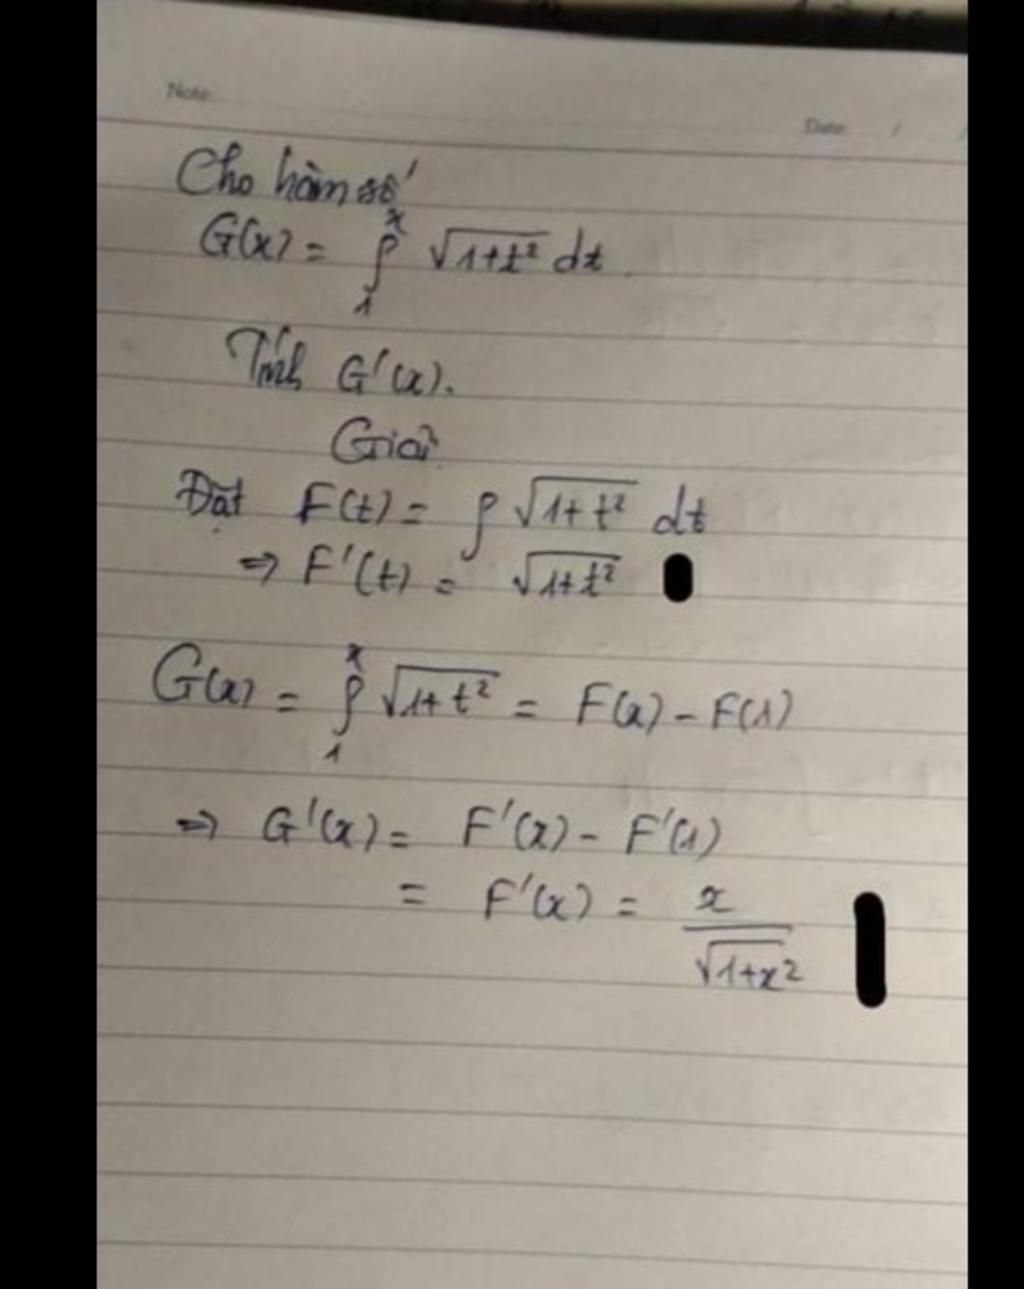 Note:
Date: / /
Cho hàm số
G(x) = ∫₁ˣ √1+t² dt
Tính G'(x).
Giải
Đặt F(t) = ∫ √1+t² dt
⇒ F'(t) = √1+t²
G(x) = ∫₁ˣ √1+t² = F(x) - F(1)
⇒ G'(x) = F'(x) - F'(1)
= F'(x) = x / √1+x²